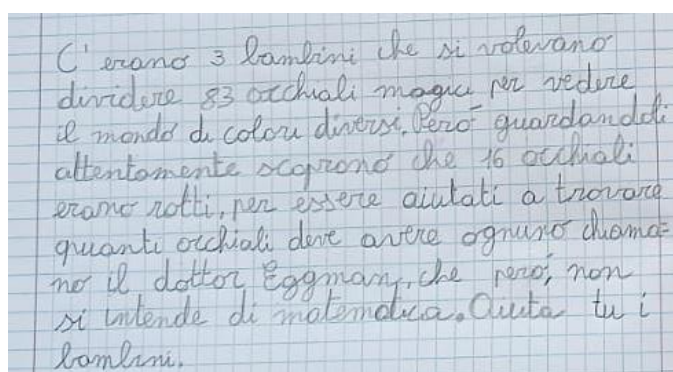 C'erano 3 bambini che si volevano
dividere 83 occhiali magici per vedere
il mondo di colori diversi. Però guardandoli
attentamente scoprono che 16 occhiali
erano rotti, per essere aiutati a trovare
quanti occhiali deve avere ognuno chiama=
no il dottor Eggman, che però, non
si intende di matematica. Aiuta tu i
bambini.